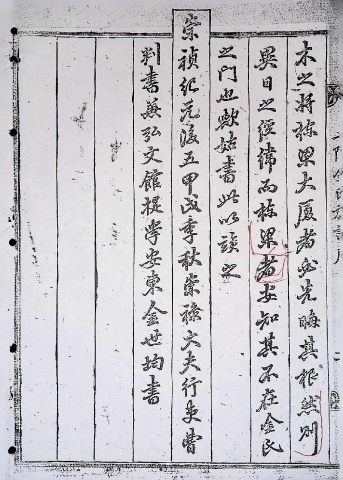 木之將棟梁大厦者必先晦其根然則
異日之經緯而棟梁者安知其不在金氏
之门也歟姑書此以頌之
崇禎紀元後五甲戌季秋崇祿大夫行吏曹
判書兼弘文館提學安東金世均書